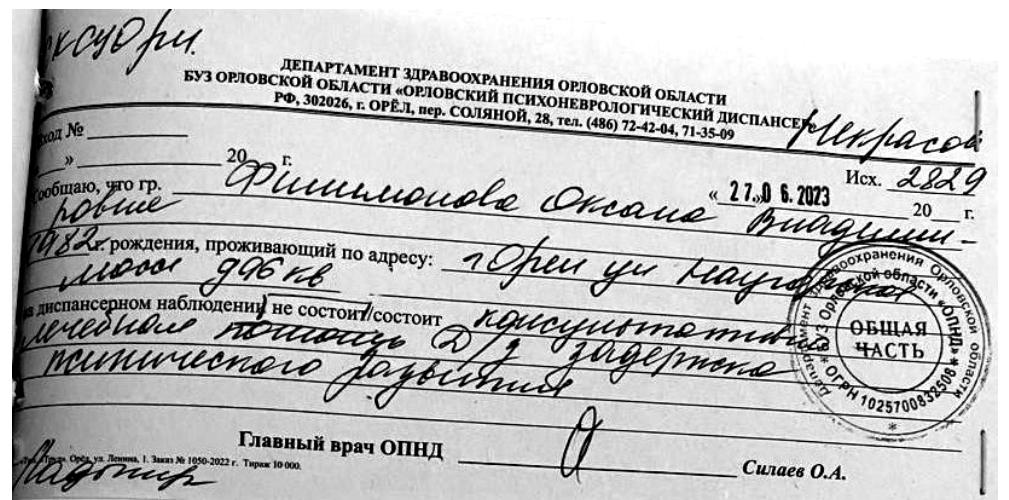 ДЕПАРТАМЕНТ ЗДРАВООХРАНЕНИЯ ОРЛОВСКОЙ ОБЛАСТИ
БУЗ ОРЛОВСКОЙ ОБЛАСТИ «ОРЛОВСКИЙ ПСИХОНЕВРОЛОГИЧЕСКИЙ ДИСПАНСЕР
РФ, 302026, г. ОРЁЛ, пер. СОЛЯНОЙ, 28, тел. (486) 72-42-04, 71-35-09
Некрасов
ход №
Исх. 2829
» 20 г.
« 27.» 0 6. 2023 20 г.
Сообщаю, что гр. Филимонова Оксана Владими-
ровне
1982 г. рождения, проживающий по адресу: г Орел ул
моссе д96 кв
на диспансерном наблюдении не состоит/состоит консультативно
лечебная помощь D/з задержка
психического развития
Департамент здравоохранения Орловской области
БУЗ Орловской области «ОПНД» * ОГРН 1025700832508 *
ОБЩАЯ
ЧАСТЬ
Главный врач ОПНД
Силаев О.А.
Труд». Орёл, ул. Ленина, 1. Заказ № 1050-2022 г. Тираж 10 000.